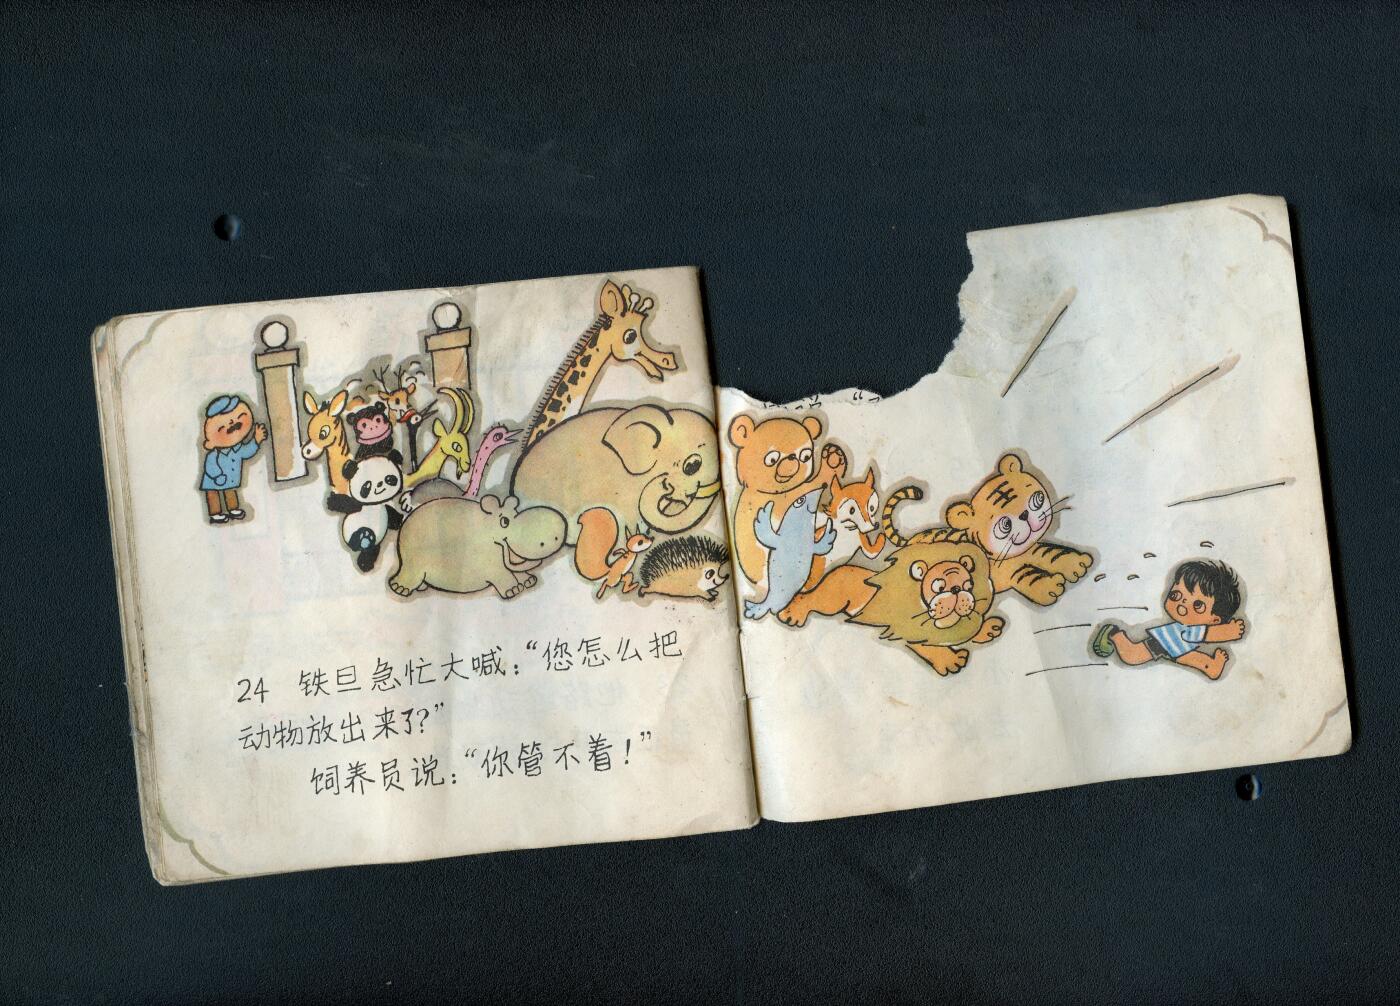 24 铁旦急忙大喊：“您怎么把
动物放出来了？”
饲养员说：“你管不着！”